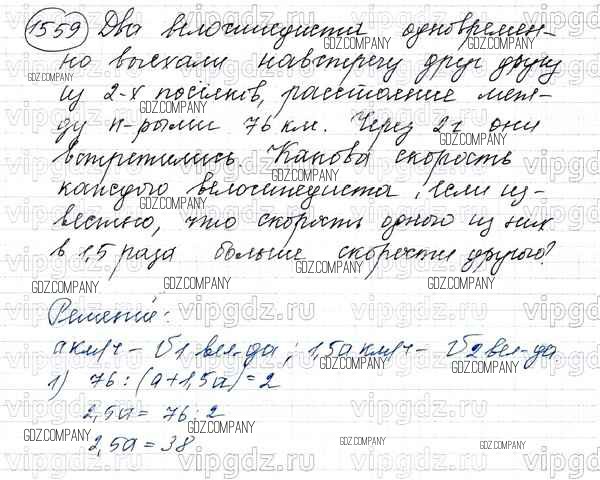 1559 Два велосипедиста одновремен-
но выехали навстречу друг другу
из 2-х посёлков, расстояние меж-
ду к-рыми 76 км. Через 2 ч они
встретились. Какова скорость
каждого велосипедиста, если из-
вестно, что скорость одного из них
в 1,5 раза больше скорости другого?
Решение:
а км/ч – V1 вел-да; 1,5а км/ч – V2 вел-да
1) 76 : (а + 1,5а) = 2
2,5а = 76 : 2
2,5а = 38